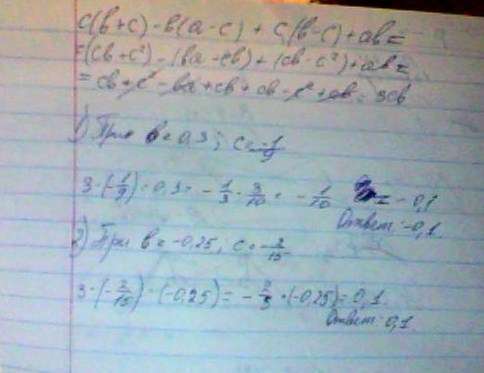 c(b+c)-b(a-c)+c(b-c)+ab=
=(cb+c²)-(ba-cb)+(cb-c²)+ab=
=cb+c²-ba+cb+cb-c²+ab=3cb
1) При b=0,3; c=-1/9
3·(-1/9)·0,3=-1/3·3/10=-1/10=-0,1
Ответ: -0,1.
2) При b=-0,25; c=-2/15
3·(-2/15)·(-0,25)=-2/5·(-0,25)=0,1.
Ответ: 0,1